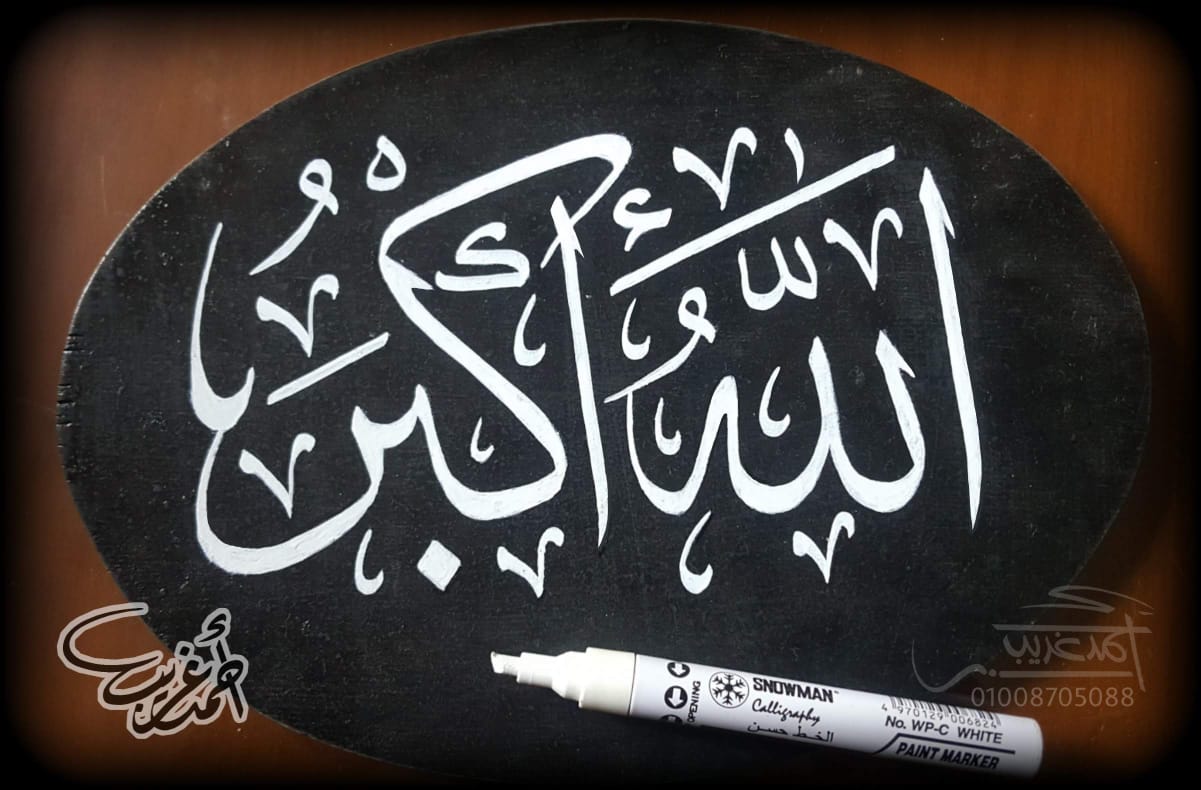 اللَّهُ أَكْبَرُ
أحمد غريب
أحمد غريب
01008705088
OPENING
SNOWMAN
Calligraphy
الخط حسن
4 970129 006824
No. WP-C WHITE
PAINT MARKER